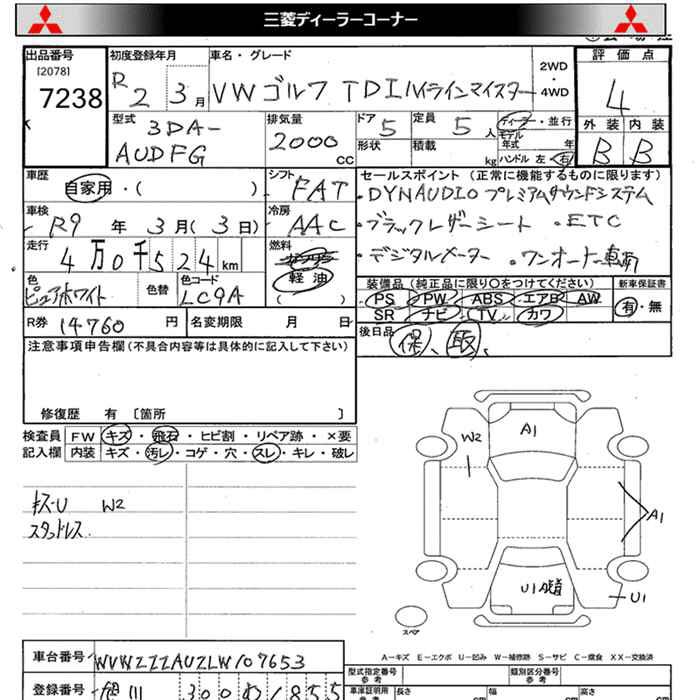 三菱ディーラーコーナー
出品番号
[2078]
7238
初度登録年月
R2 3月
車名・グレード
VW ゴルフ TDIハイラインマイスター
2WD
・
4WD
評価点
4
外装 内装
B B
型式
3DA-
AUDFG
排気量
2000
CC
ドア 5
定員 5人
形状
積載 kg
ディーラー・並行
モデル
年式 年
ハンドル 左・右
車歴
自家用・( )
シフト
FAT
セールスポイント (正常に機能するものに限ります)
・DYNAUDIO プレミアムサウンドシステム
・ブラックレザーシート ・ETC
・デジタルメーター ・ワンオーナー車両
車検
R9 年 3月(3日)
冷房
AAC
走行
4万0千524km
燃料
軽油
( )
色
ピュアホワイト
色替
色コード
LC9A
装備品 (純正品に限り○をつけてください)
PS PW ABS エアB AW
SR ナビ TV カワ
新車保証書
有・無
R券 14760 円
名変期限 月 日
後日品
保、取、
注意事項申告欄(不具合内容等は具体的に記入して下さい)
修復歴 有 〔箇所 〕
検査員 FW キズ・飛石・ヒビ割・リペア跡・×要
記入欄 内装 キズ・汚レ・コゲ・穴・スレ・キレ・破レ
キズ・U W2
スタッドレス
W2
A1
A1
U1
U1
スペア
A−キズ E−エクボ U−凹み W−補修跡 S−サビ C−腐食 XX−交換済
車台番号
WVWZZZAUZLW107653
登録番号
300
1855
型式指定番号
参考
類別区分番号
参考
車庫証明用
長さ cm
幅 cm
高さ cm